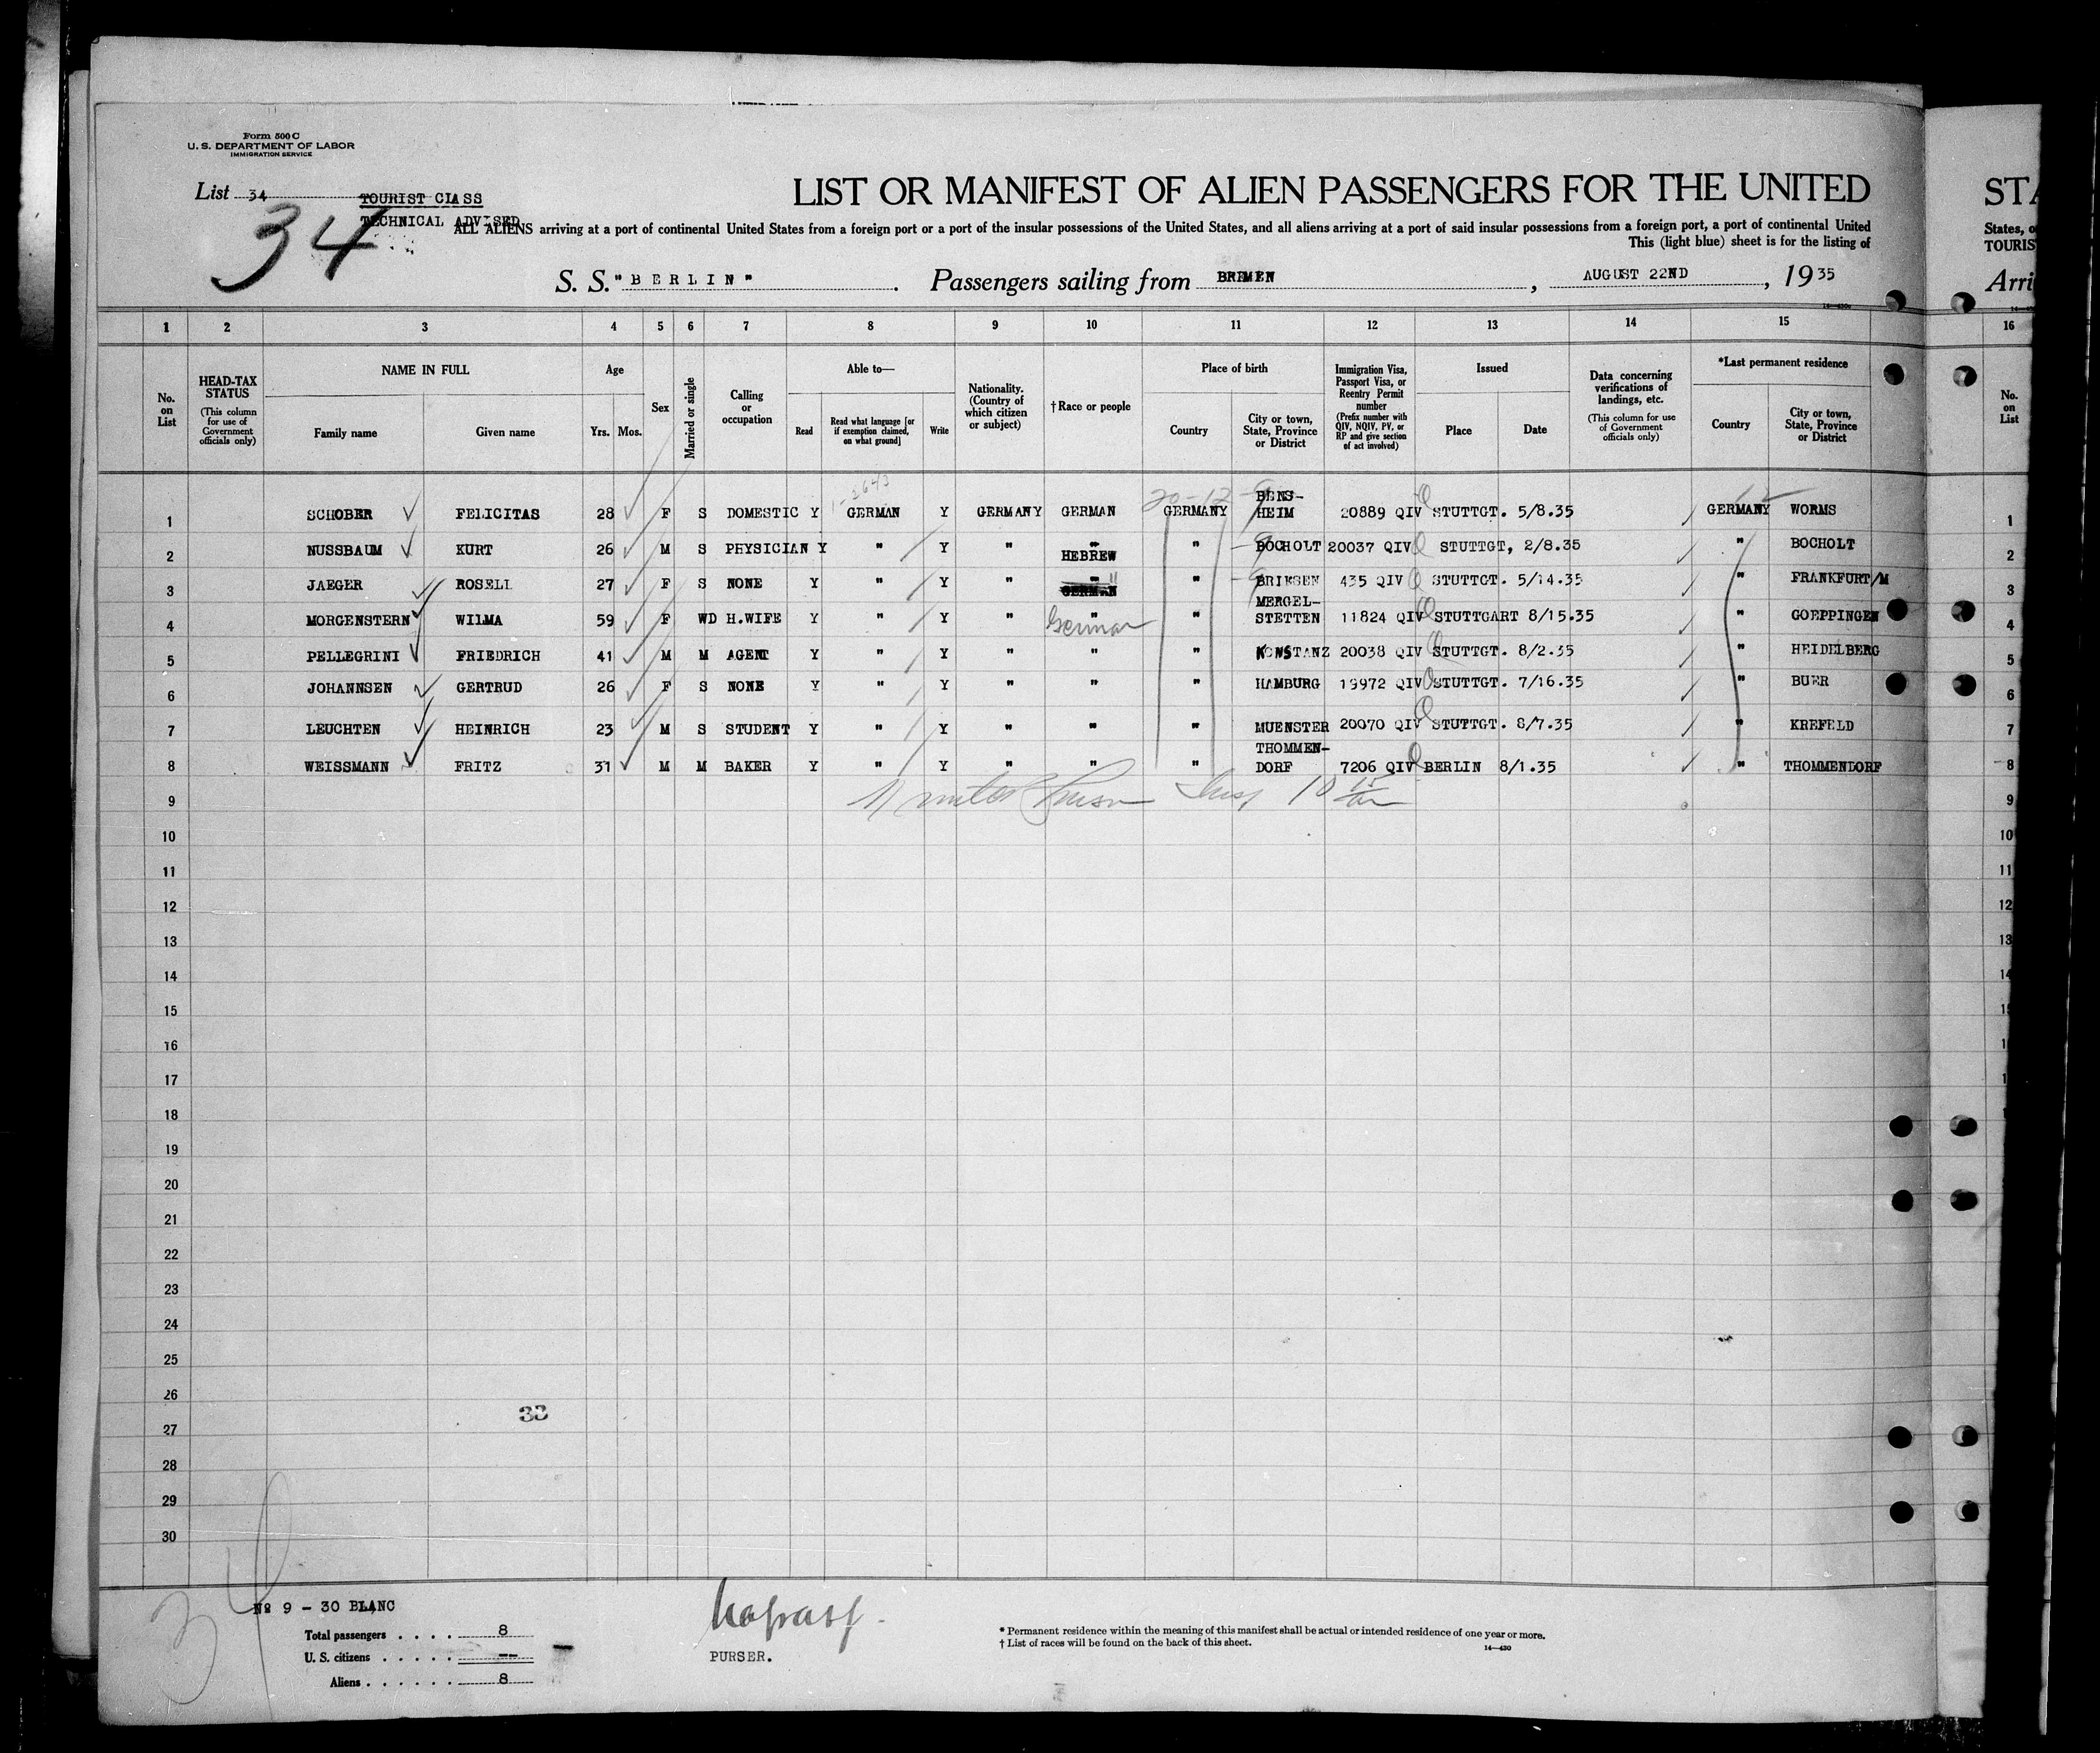 Form 500 C
U. S. DEPARTMENT OF LABOR
IMMIGRATION SERVICE
List 34
TOURIST CLASS
TECHNICAL ADVISED
34
LIST OR MANIFEST OF ALIEN PASSENGERS FOR THE UNITED
STA
ALL ALIENS arriving at a port of continental United States from a foreign port or a port of the insular possessions of the United States, and all aliens arriving at a port of said insular possessions from a foreign port, a port of continental United
States, o
This (light blue) sheet is for the listing of
TOURIS
S. S. "BERLIN" . Passengers sailing from BREMEN , AUGUST 22ND , 19 35
Arri
1 2 3 4 5 6 7 8 9 10 11 12 13 14 15 16
No. on List
HEAD-TAX STATUS (This column for use of Government officials only)
NAME IN FULL
Family name Given name
Age
Yrs. Mos.
Sex
Married or single
Calling or occupation
Able to—
Read
Read what language [or if exemption claimed, on what ground]
Write
Nationality. (Country of which citizen or subject)
†Race or people
Place of birth
Country
City or town, State, Province or District
Immigration Visa, Passport Visa, or Reentry Permit number (Prefix number with QIV, NQIV, PV, or RP and give section of act involved)
Issued
Place Date
Data concerning verifications of landings, etc. (This column for use of Government officials only)
*Last permanent residence
Country
City or town, State, Province or District
No. on List
1 SCHOBER FELICITAS 28 F S DOMESTIC Y GERMAN Y GERMANY GERMAN GERMANY BENS-HEIM 20889 QIV STUTTGT. 5/8.35 GERMANY WORMS 1
2 NUSSBAUM KURT 26 M S PHYSICIAN Y " Y " " HEBREW " BOCHOLT 20037 QIV STUTTGT, 2/8.35 " BOCHOLT 2
3 JAEGER ROSELL 27 F S NONE Y " Y " " GERMAN " BRIESEN 435 QIV STUTTGT. 5/14.35 " FRANKFURT/M 3
4 MORGENSTERN WILMA 59 F WD H.WIFE Y " Y " " German " MERGEL-STETTEN 11824 QIV STUTTGART 8/15.35 " GOEPPINGEN 4
5 PELLEGRINI FRIEDRICH 41 M M AGENT Y " Y " " " KONSTANZ 20038 QIV STUTTGT. 8/2.35 " HEIDELBERG 5
6 JOHANNSEN GERTRUD 26 F S NONE Y " Y " " " HAMBURG 19972 QIV STUTTGT. 7/16.35 " BUER 6
7 LEUCHTEN HEINRICH 23 M S STUDENT Y " Y " " " MUENSTER 20070 QIV STUTTGT. 8/7.35 " KREFELD 7
8 WEISSMANN FRITZ 31 M M BAKER Y " Y " " " THOMMEN-DORF 7206 QIV BERLIN 8/1.35 " THOMMENDORF 8
9 9
10 10
11 11
12 12
13 13
14 14
15
16
17
18
19
20
21
22
23
24
25
26
33
27
28
29
30
34
№ 9 - 30 BLANC
Total passengers . . . . 8
U. S. citizens . . . . . --
Aliens . . . . . . 8
PURSER.
* Permanent residence within the meaning of this manifest shall be actual or intended residence of one year or more.
† List of races will be found on the back of this sheet.
14—430